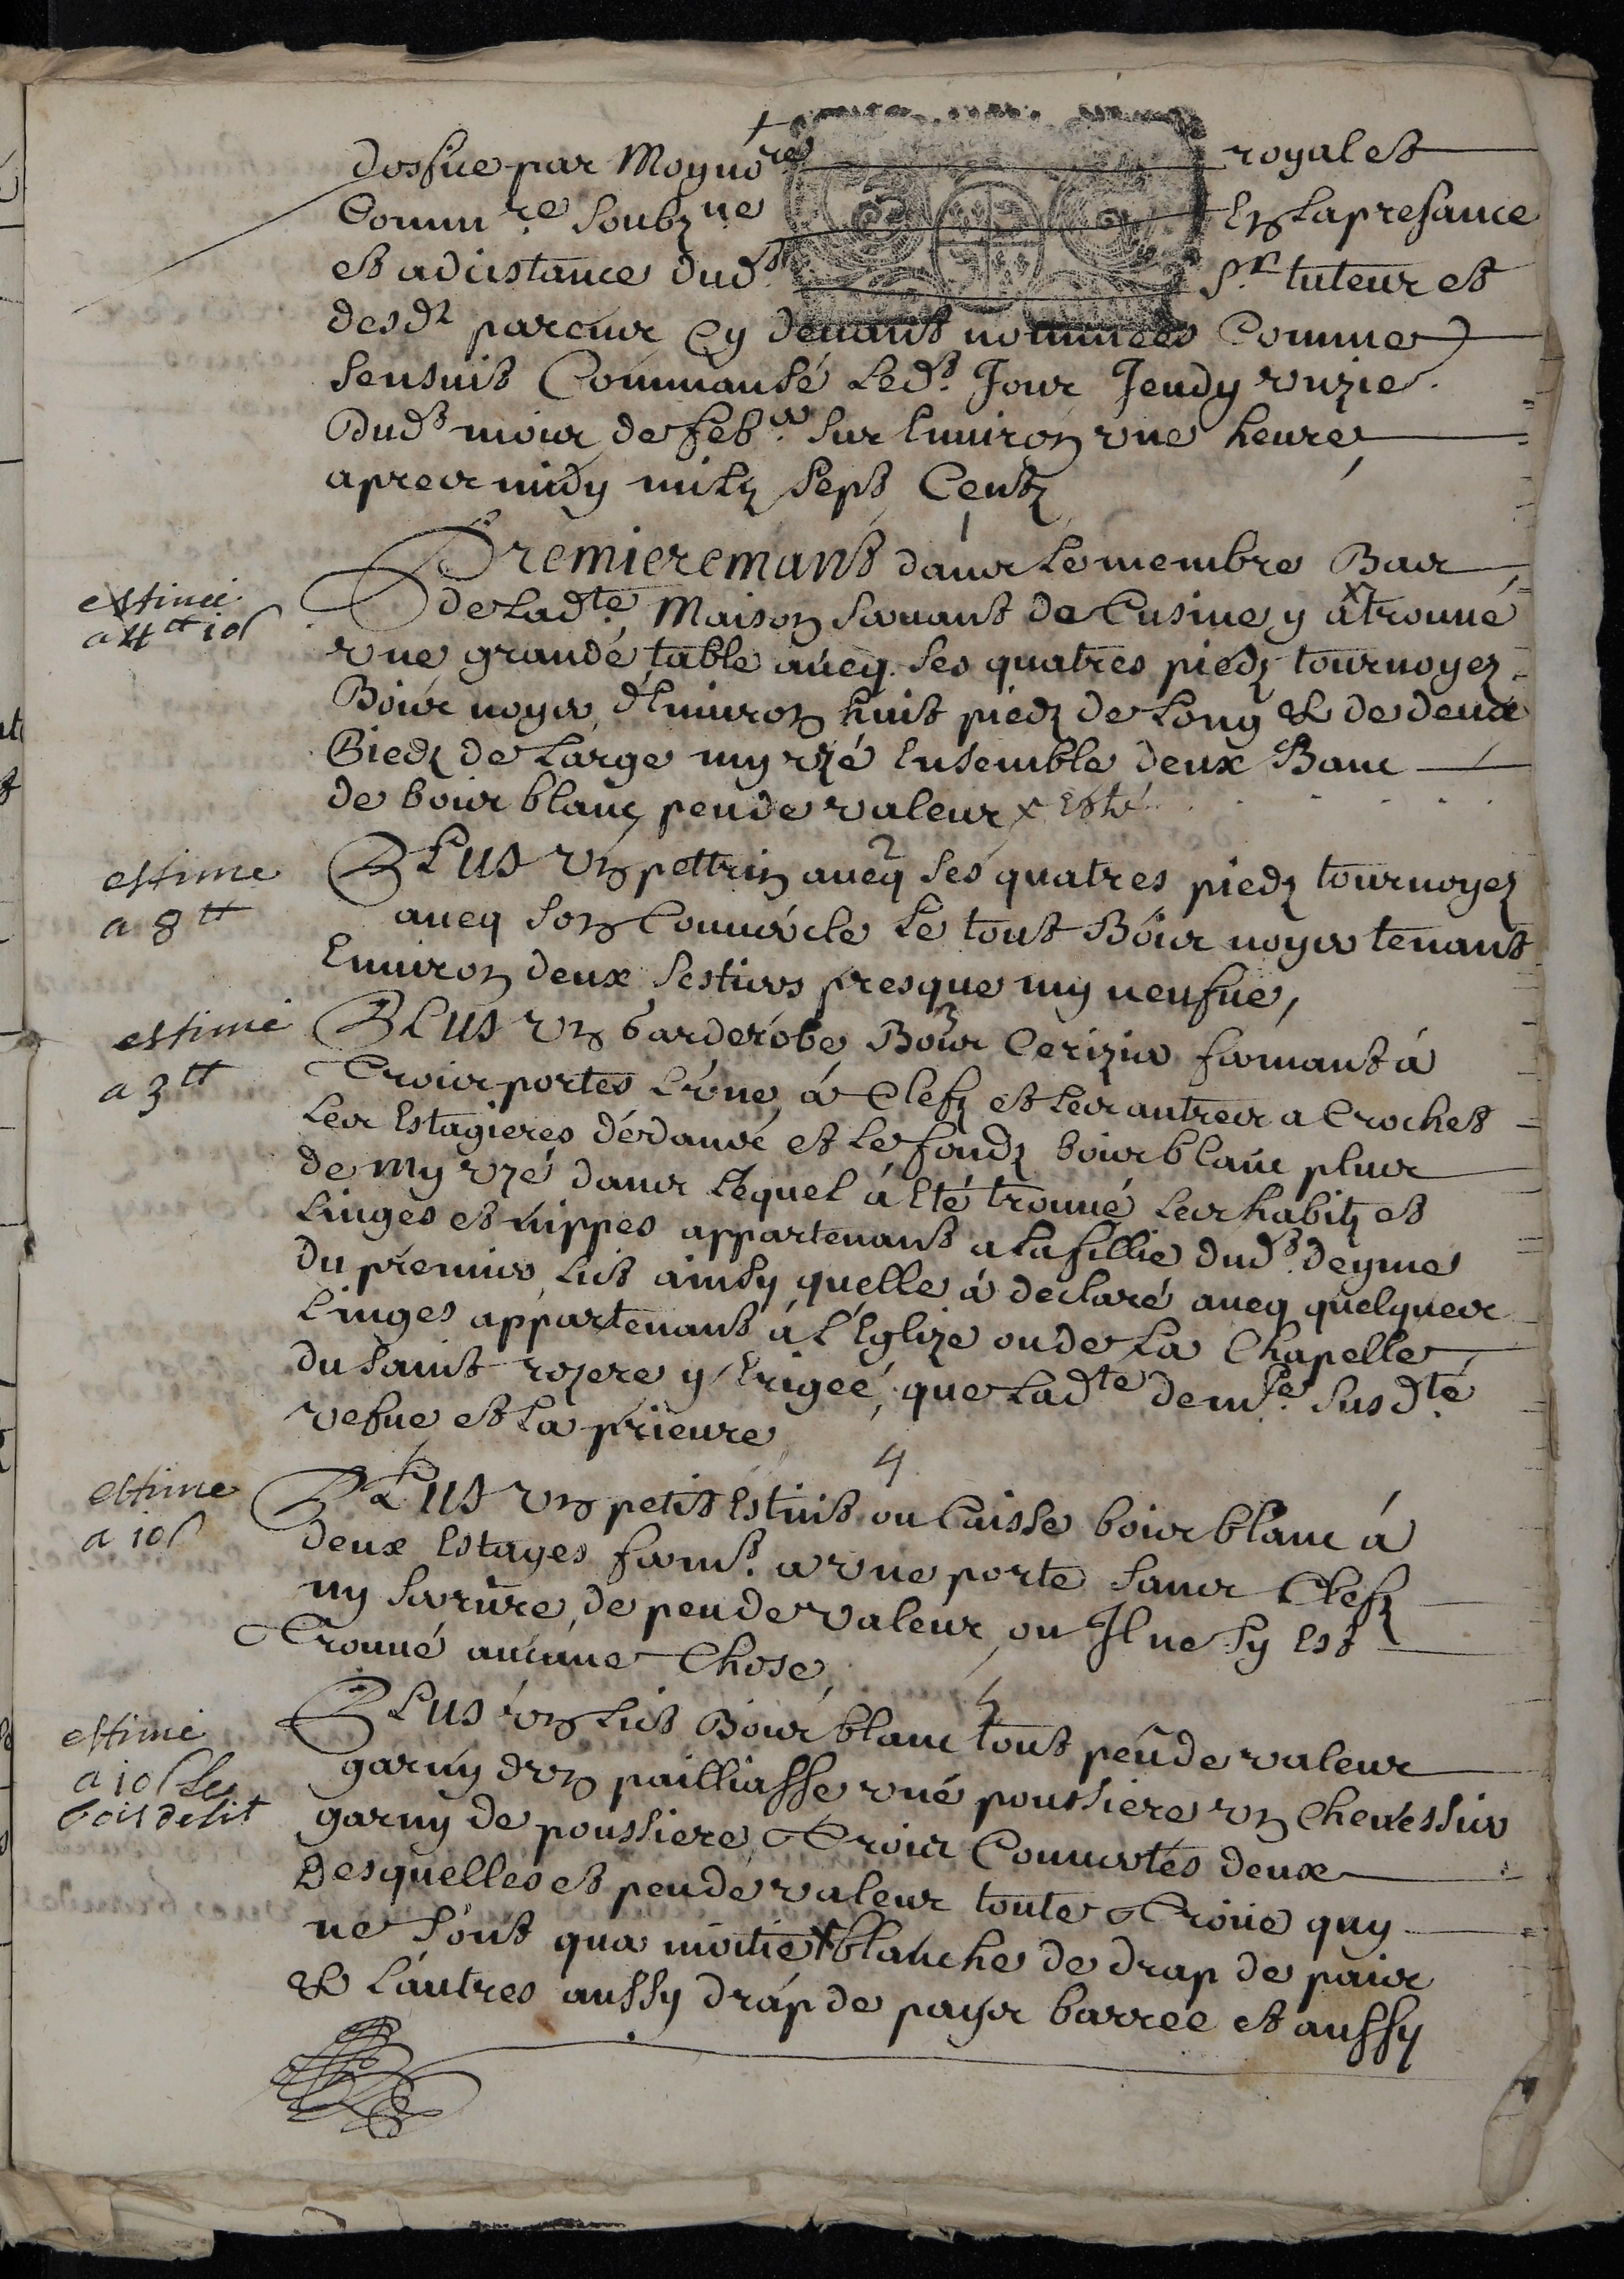 dosfue par Moy no.re royal et
Comm.re soubz.ne En la presance
et adcistance dud.t S.r tuteur et
desd.s parans cy devant nommées Comme
sensuit Commansé led.t Jour Jeudy unzie.
dud.t mois de feb.er sur Environ une heure
apres midy milz sept Centz
1
Premieremant dans le membre Bas
de lad.te Maison servant de Cusine y a trouvé
une grande table aveq ses quatres piedz tournoyez
Bois noyer d'Environ huit piedz de long & de deux
Piedz de large my uzé Ensemble deux Banc
de bois blanc peu de valeur x Esté
estimée
a 4 tt 10 s
2
Plus un pettrin aveq ses quatres piedz tournoyez
aveq son Couvercle le tout Bois noyer tenant
Environ deux sestiers presque my neufve,
estime
a 8 tt
3
Plus un Garderobe Bois Cerizier fermant á
Trois portes l'une á Clefz et les autres a Crochet
les Estagieres dédans et le fondz bois blanc plus
de my uzé dans léquel á Eté trouvé les habitz et
linges et nippes appartenant a la fillie dud.t deyme
du premier lict ainsy quelle á declaré aveq quelques
linges appartenant á l'Eglize ou de la Chapelle
du saint rozere y Erigeé, que lad.te dem.lle susd.te
vefue et la prieure
estimé
a 3 tt
4
Plus un petit Estuit ou Caisse bois blanc á
deux Estages ferm.t a une porte sans Clefz
ny serrure de peu de valeur ou Il ne sy Est
Trouvé aucune Chose
estime
a 10 s
5
Plus un lict Bois blanc tout peu de valeur
garny d'un pailliasse uné poussiere un Chevessier
garny de poussiere Trois Couvertes deux
Desquelles et peu de valeur toute Troüe quy
ne sont qua moitie blanche de drap de pais
& l'autres aussy dráp de pays barree et aussy
estimé
a 10 s le
bois de lit